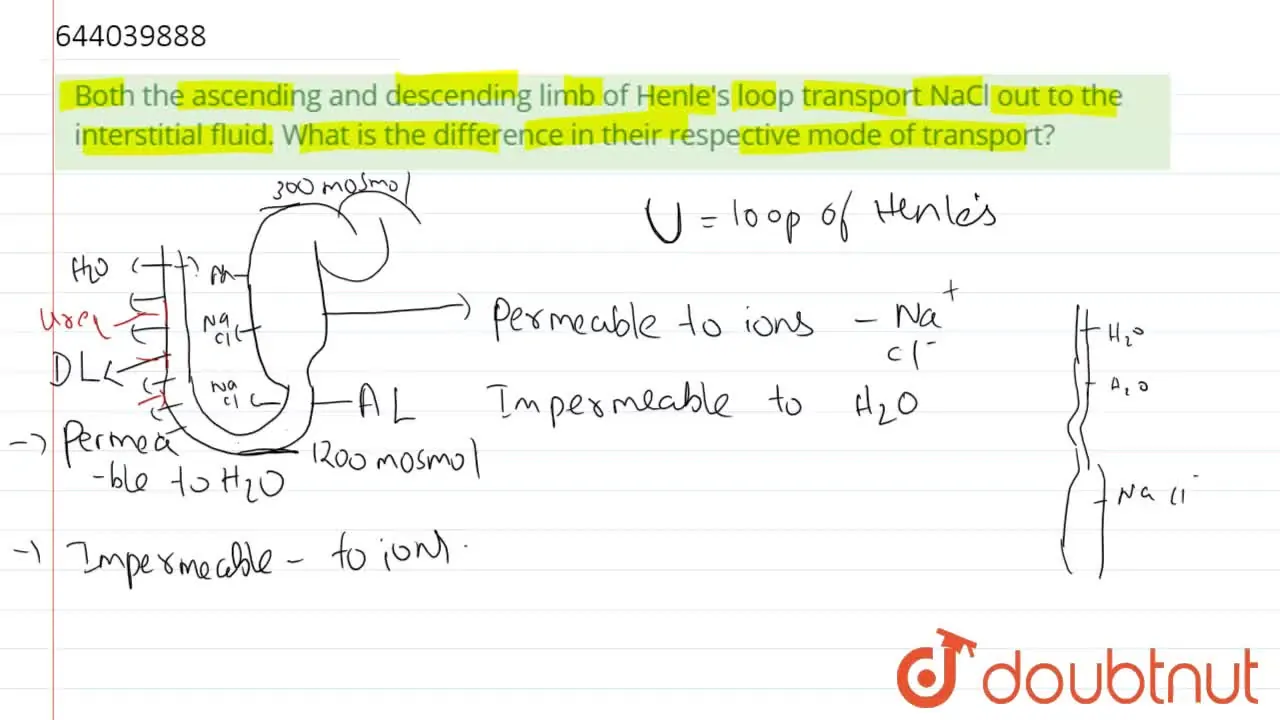 644039888
Both the ascending and descending limb of Henle's loop transport NaCl out to the
interstitial fluid. What is the difference in their respective mode of transport?
300 mosmol
U = loop of Henle's
H2O
Urea
DL
Na
Cl
Na
Cl
AL
1200 mosmol
Permeable to ions - Na+
Cl-
Impermeable to H2O
→ Permea
-ble to H2O
→ Impermeable - to ions.
H2O
H2O
Na Cl-
doubtnut